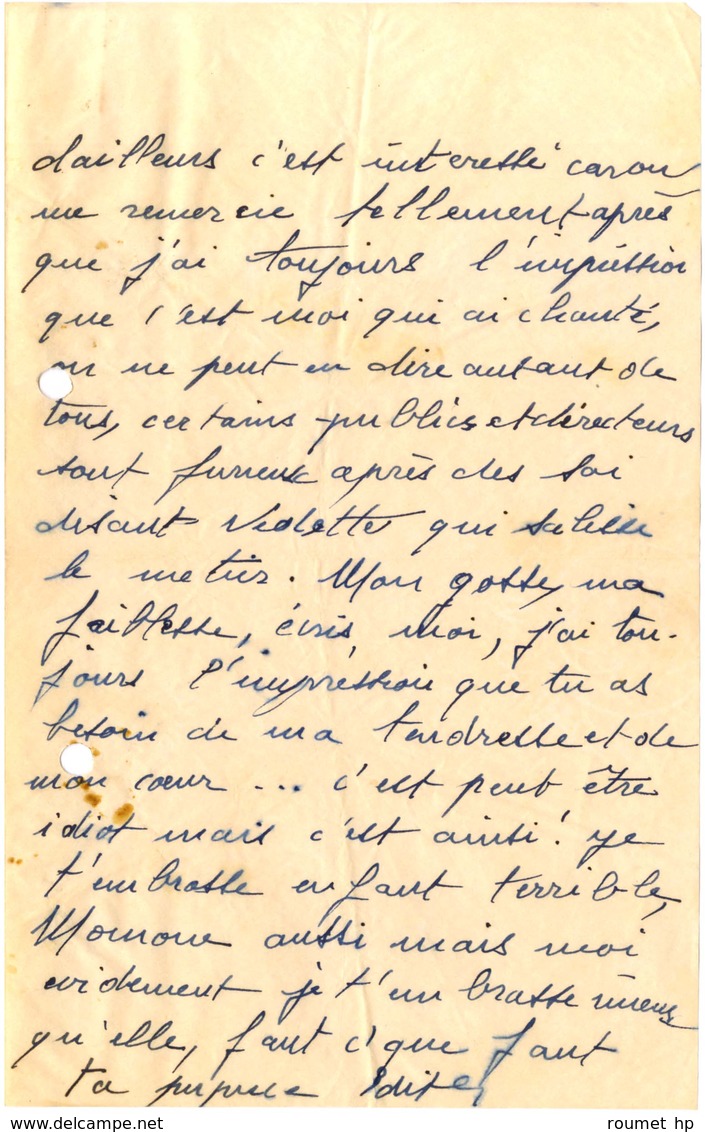 dailleurs c'est intéressé car on
me remercie tellement après
que j'ai toujours l'impréssion
que c'est moi qui ai chanté,
on ne peut en dire autant de
tous, certains publics et directeurs
sont furieux après des soi
disant vedettes qui
le metier. Mon gosse, ma
faiblesse, écris moi, j'ai tou-
jours l'impréssion que tu as
besoin de ma tendresse et de
mon cœur ... c'est peut être
idiot mais c'est ainsi! je
t'embrasse enfant terrible,
Momone aussi mais moi
evidement je t'embrasse mieux
qu'elle, faut c'que faut
ta Edite
roumet hp